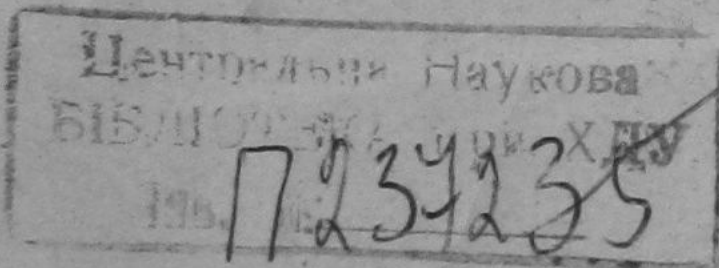 Центральна Наукова
БІБЛІОТЕКА при ХДУ
П237235